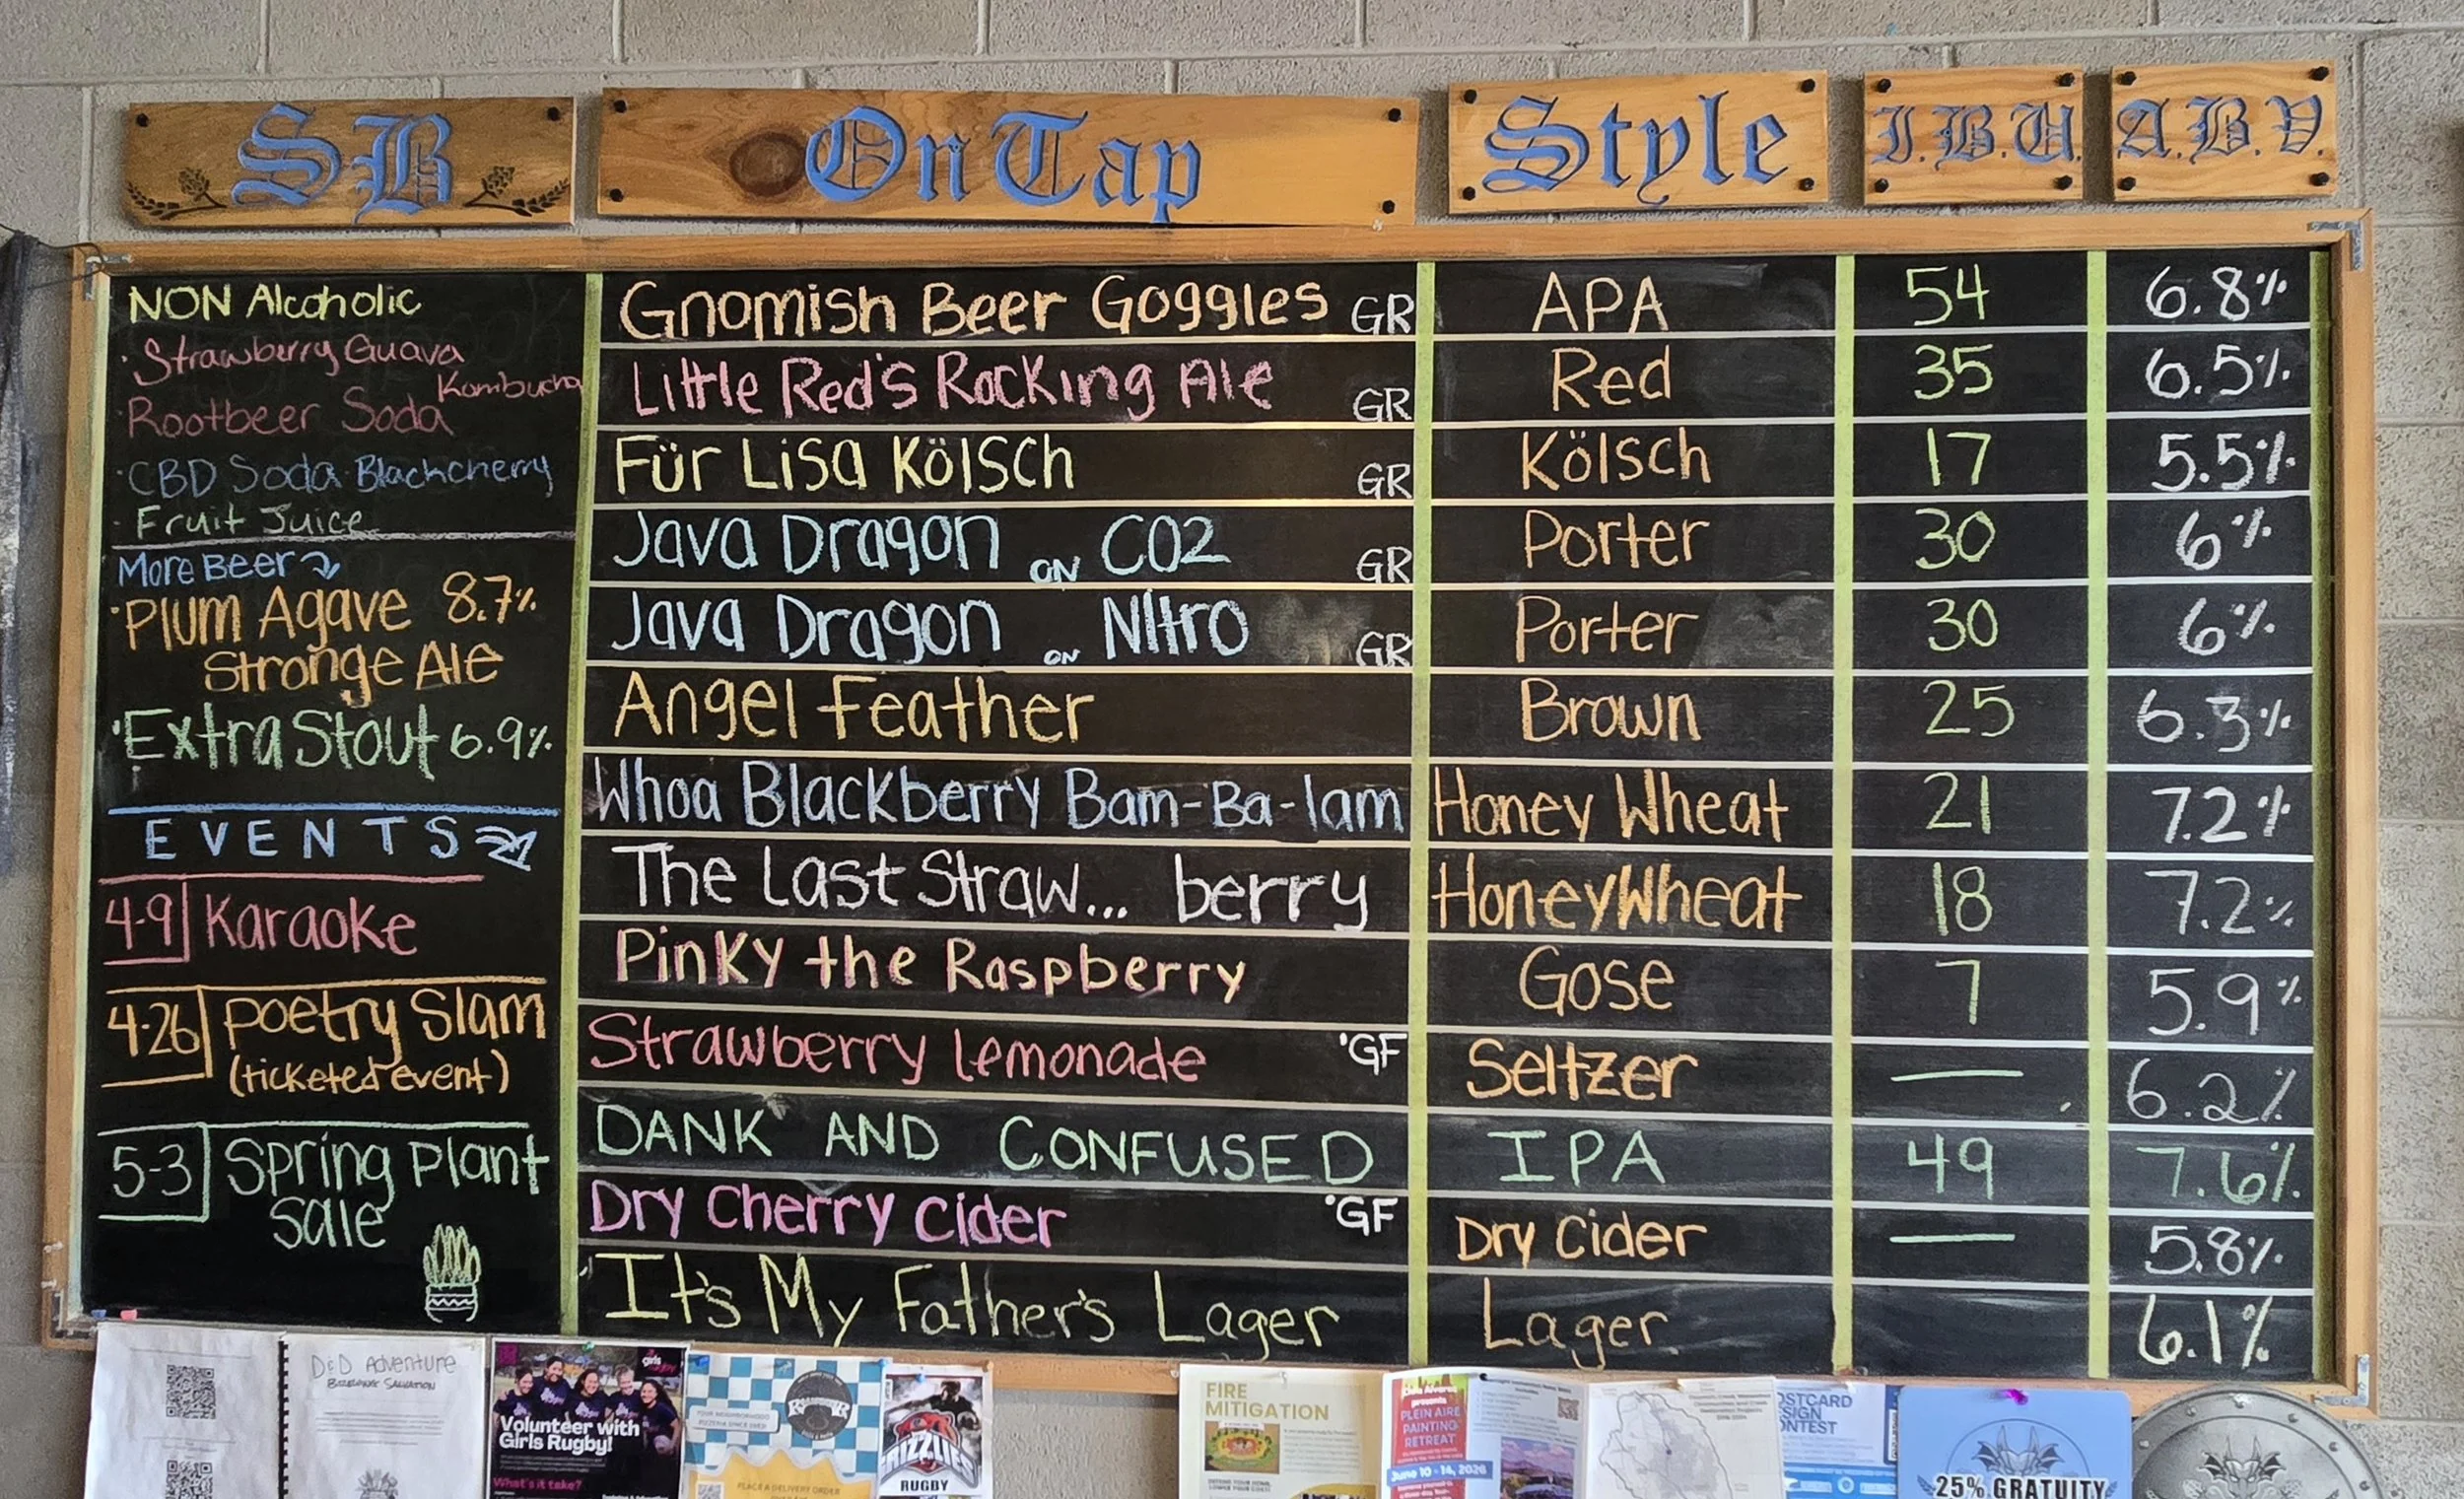 SB
On Tap
Style
I.B.U.
A.B.V.
NON Alcoholic
· Strawberry Guava Kombucha
· Rootbeer Soda
· CBD Soda Blackcherry
· Fruit Juice
More Beer
· Plum Agave 8.7%
Stronge Ale
· Extra Stout 6.9%
EVENTS
4-9 Karaoke
4-26 Poetry Slam
(ticketed event)
5-3 Spring Plant
Sale
Gnomish Beer Goggles GR APA 54 6.8%
Little Red's Rocking Ale GR Red 35 6.5%
Für Lisa Kölsch GR Kölsch 17 5.5%
Java Dragon ON CO2 GR Porter 30 6%
Java Dragon ON Nitro GR Porter 30 6%
Angel Feather Brown 25 6.3%
Whoa Blackberry Bam-Ba-lam Honey Wheat 21 7.2%
The Last Straw... berry Honey Wheat 18 7.2%
Pinky the Raspberry Gose 7 5.9%
Strawberry Lemonade *GF Seltzer — 6.2%
DANK AND CONFUSED IPA 49 7.6%
Dry Cherry Cider *GF Dry Cider — 5.8%
It's My Father's Lager Lager 6.1%
D&D Adventure
Volunteer with
Girls Rugby!
What's it take?
PLACE A DELIVERY ORDER
GRIZZLIES
RUGBY
FIRE
MITIGATION
presents
PLEIN AIRE
PAINTING
RETREAT
June 10 - 14, 2026
25% GRATUITY